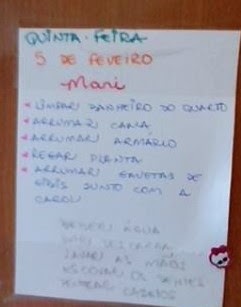 QUINTA-FEIRA
5 DE FEVEIRO
Mari
LIMPAR BANHEIRO DO QUARTO
ARRUMAR CAMA
ARRUMAR ARMARIO
REGAR PLANTA
ARRUMAR GAVETAS DE
GIBIS JUNTO COM A
CAROL
BEBER ÁGUA
LAVAR AS MÃOS
ESCOVAR OS DENTES
PENTEAR CABELOS